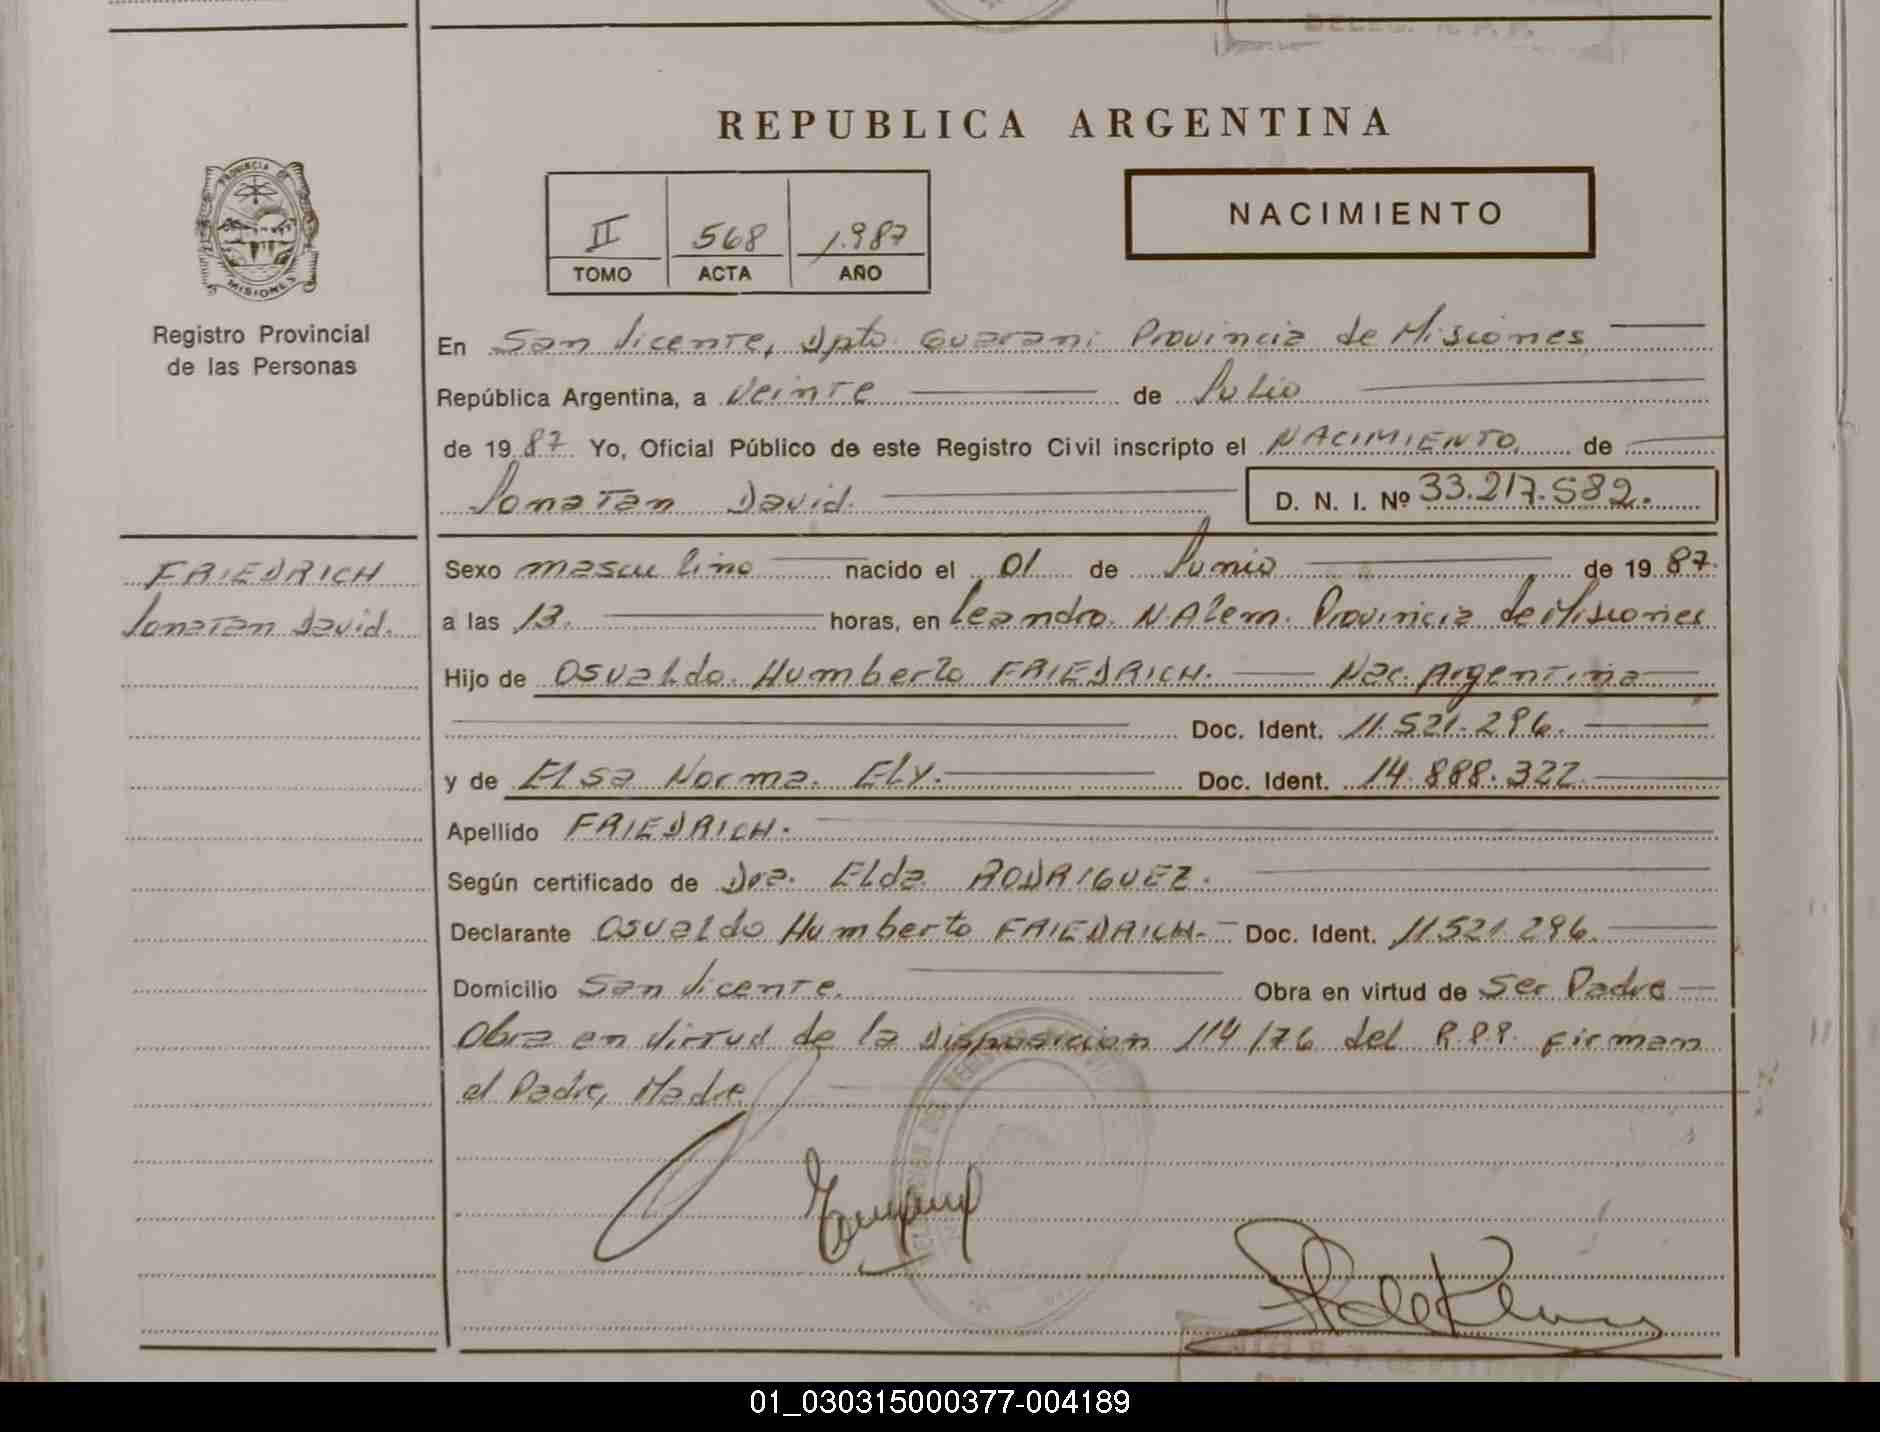 DELEG. R.P.P.
REPUBLICA ARGENTINA
PROVINCIA DE
MISIONES
NACIMIENTO
II 568 1.987
TOMO ACTA AÑO
Registro Provincial
de las Personas
En San Vicente, Dpto. Guarani Provincia de Misiones
República Argentina, a Veinte de Julio
de 19 87 Yo, Oficial Público de este Registro Civil inscripto el NACIMIENTO de
Jonatan David. D. N. I. Nº 33.217.582.
FRIEDRICH
Jonatan David.
Sexo masculino nacido el 01 de Junio de 19 87.
a las 13. horas, en Leandro. N. Alem. Provincia de Misiones
Hijo de Osvaldo. Humberto FRIEDRICH. Nac. Argentina
Doc. Ident. 11.521.296.
y de Elsa Norma. ELY. Doc. Ident. 14.888.322.
Apellido FRIEDRICH.
Según certificado de Dra. Elda RODRIGUEZ.
Declarante Osvaldo Humberto FRIEDRICH. Doc. Ident. 11.521.296.
Domicilio San Vicente. Obra en virtud de Ser Padre
Obra en Virtud de la Disposicion 114/76 del R.P.P. Firman
el Padre, Madre
01_030315000377-004189